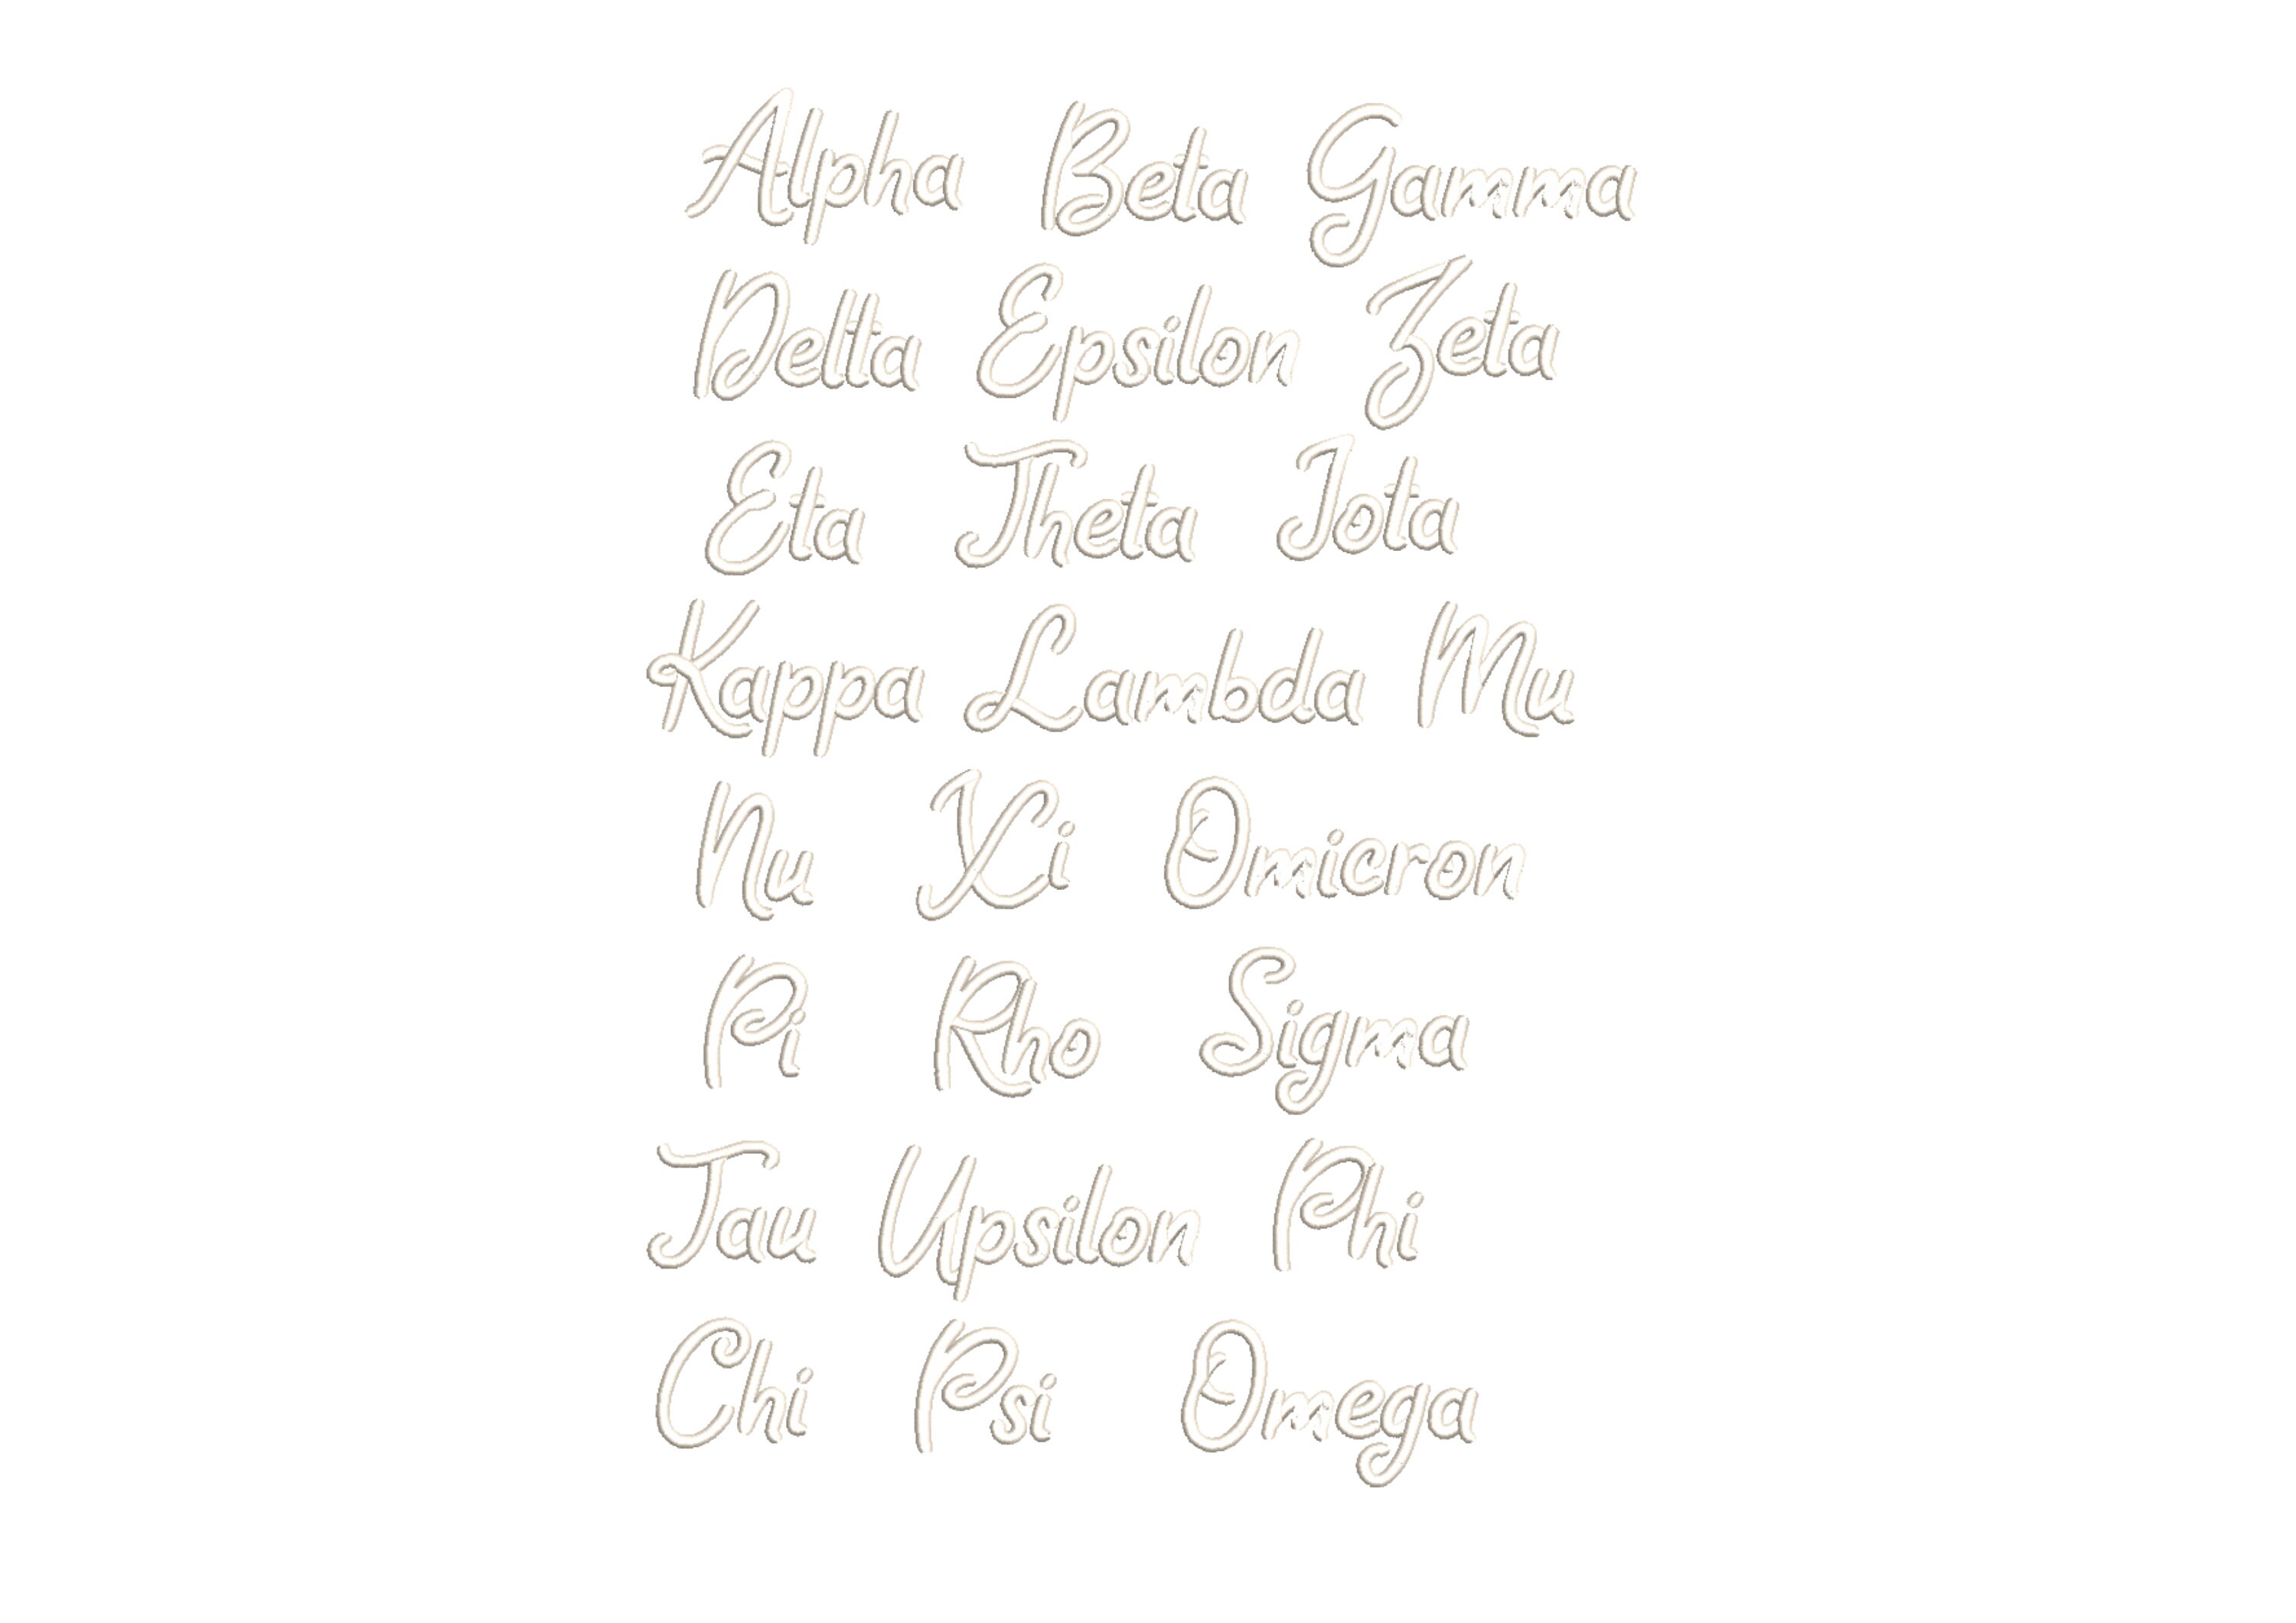 Alpha Beta Gamma
Delta Epsilon Zeta
Eta Theta Iota
Kappa Lambda Mu
Nu Xi Omicron
Pi Rho Sigma
Tau Upsilon Phi
Chi Psi Omega